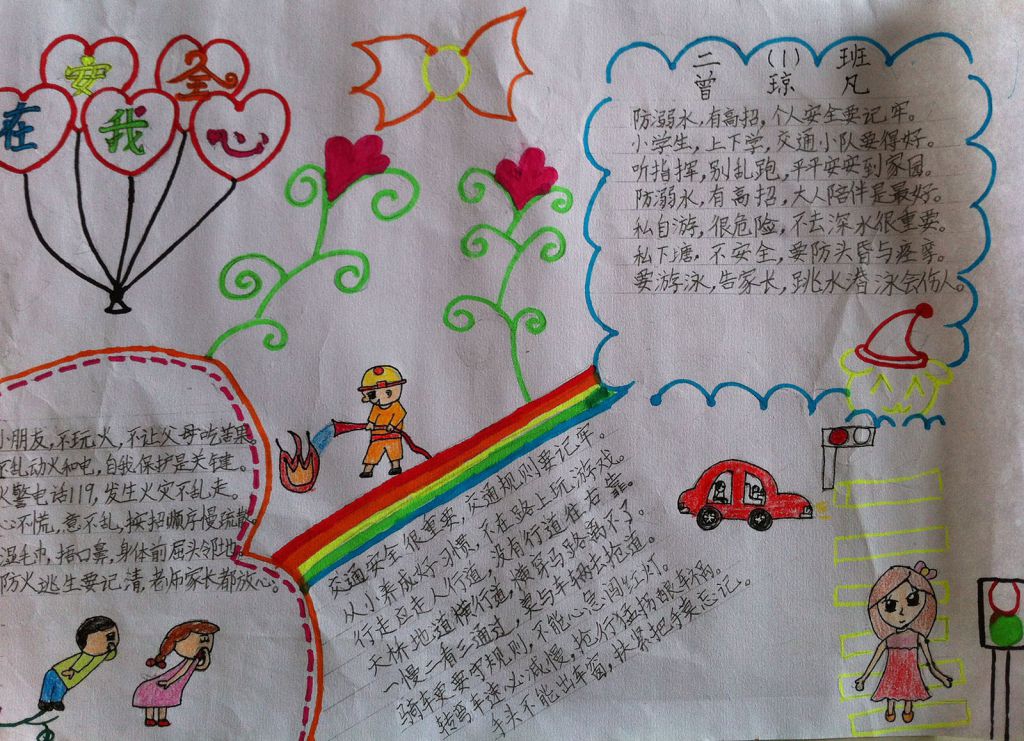 安全
在我心
二（1）班
曾琼凡
防溺水，有高招，个人安全要记牢。
小学生，上下学，交通小队要得好。
听指挥，别乱跑，平平安安到家园。
防溺水，有高招，大人陪伴是最好。
私自游，很危险，不去深水很重要。
私下塘，不安全，要防头昏与痉挛。
要游泳，告家长，跳水潜泳会伤人。
小朋友，不玩火，不让父母吃苦果。
不乱动火和电，自我保护是关键。
火警电话119，发生火灾不乱走。
心不慌，意不乱，按招顺序慢疏散。
湿毛巾，捂口鼻，身体前屈头邻地。
防火逃生要记清，老师家长都放心。
交通安全很重要，交通规则要记牢。
从小养成好习惯，不在路上玩游戏。
行走应走人行道，没有行道往右靠。
天桥地道横行道，横穿马路离不了。
一慢二看三通过，莫与车辆去抢道。
骑车更要守规则，不能心急闯红灯。
转弯车速必减慢，抢行猛拐眼车祸。
手头不能出车窗，扶紧把手莫忘记。